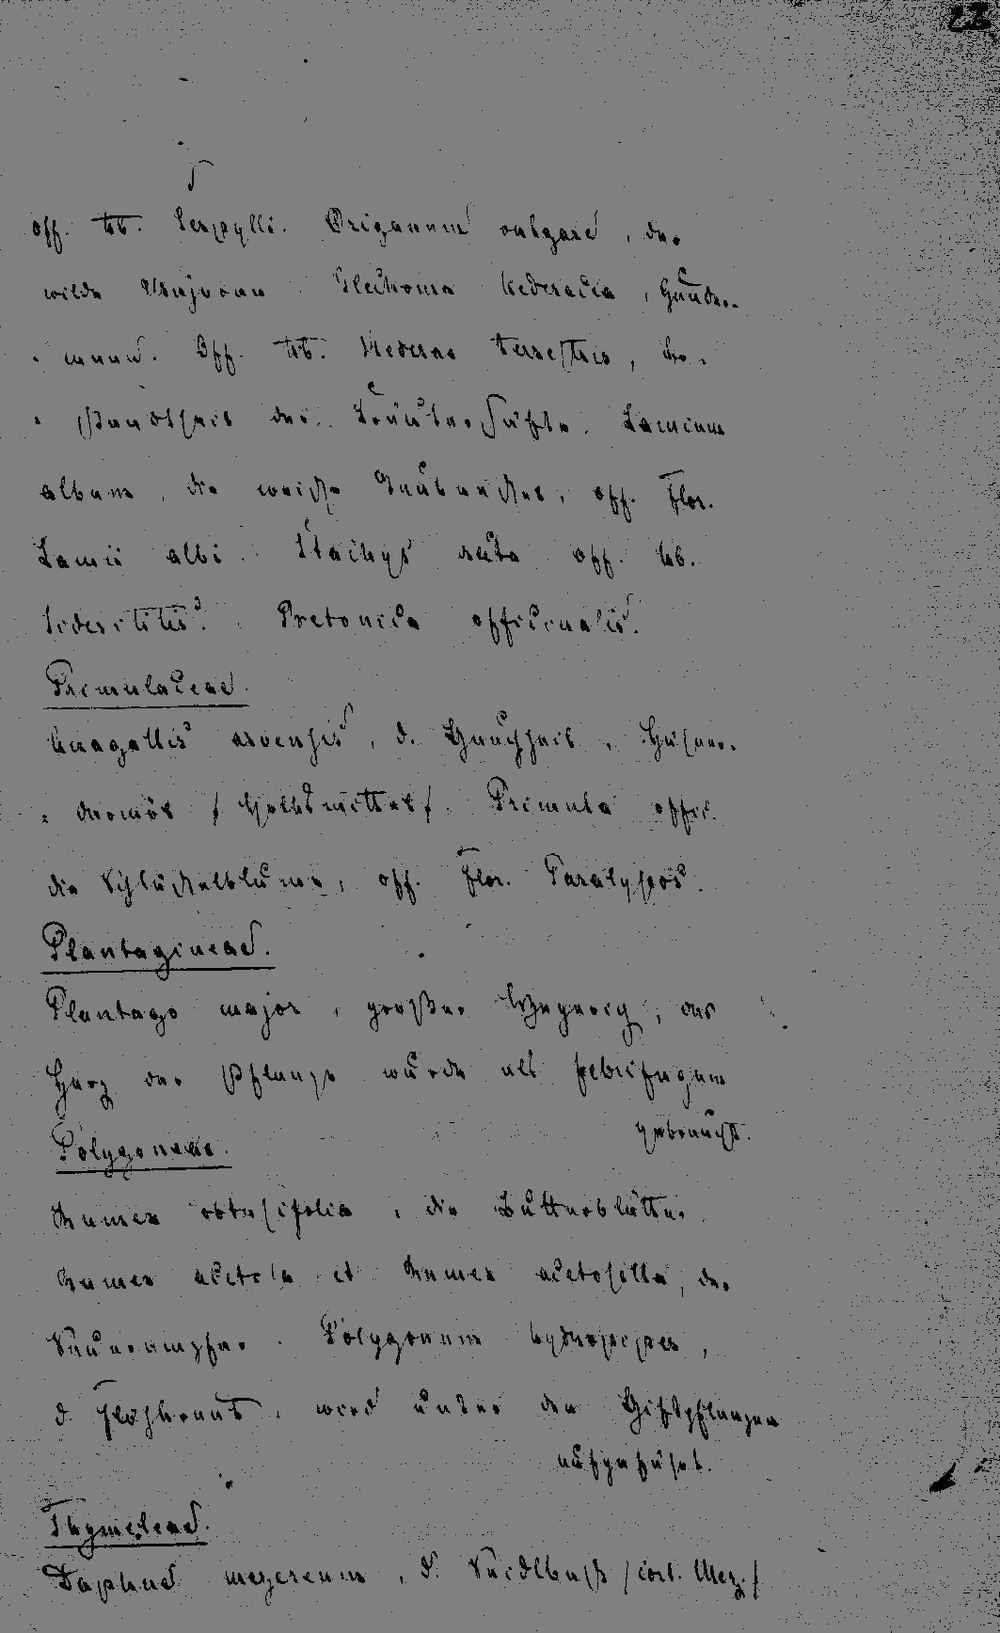 22
off. hb. Serpylli. Origanum vulgare, der
wilde Majoran. Glechoma hederacea, Gunder-
- mann. Off. hb. Hederae terrestris, Be-
- standtheil der Kräutersäfte. Lamium
album, die weiße Taubnessel, off. Flor.
Lamii albi. Stachys recta off. hb.
Siderititis. Pretonica officinalis.
Primulaceae.
Anagallis arvensis, d. Gauchheil, Hühner-
- darm / Volksmittel /. Primula offic.
die Schlüsselblume, off. Flor. Paralyseos.
Plantagineae.
Plantago major, großer Wegerich, das
Harz der Pflanze wurde als febrifugum
gebraucht.
Polygoneae.
Rumex obtusifolia, die Butterblätter
Rumex acetosa et Rumex acetosella, der
Sauerampfer. Polygonum hydropiper,
d. Flöhkraut, wird unter den Giftpflanzen
aufgeführt.
Thymeleae.
Daphne mezereum, d. Seidlbast / Cort. Mez. /